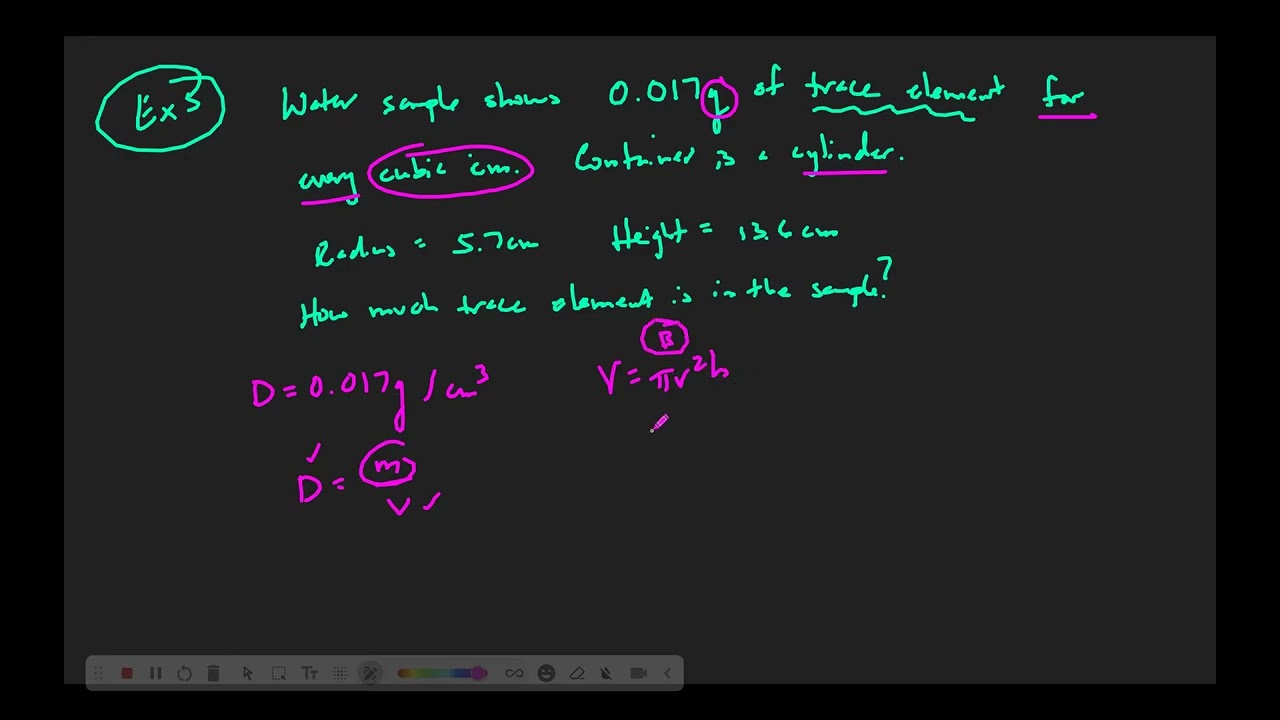 Ex 5
Water sample shows 0.017g of trace element for
every cubic cm. Container is a cylinder.
Radius = 5.7cm Height = 13.6 cm
How much trace element is in the sample?
B
D = 0.017g / cm³ V = πr²h
D = m
V
Tт